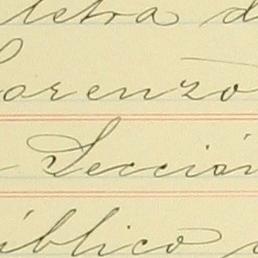 letra d
Lorenzo
Sección
úblico